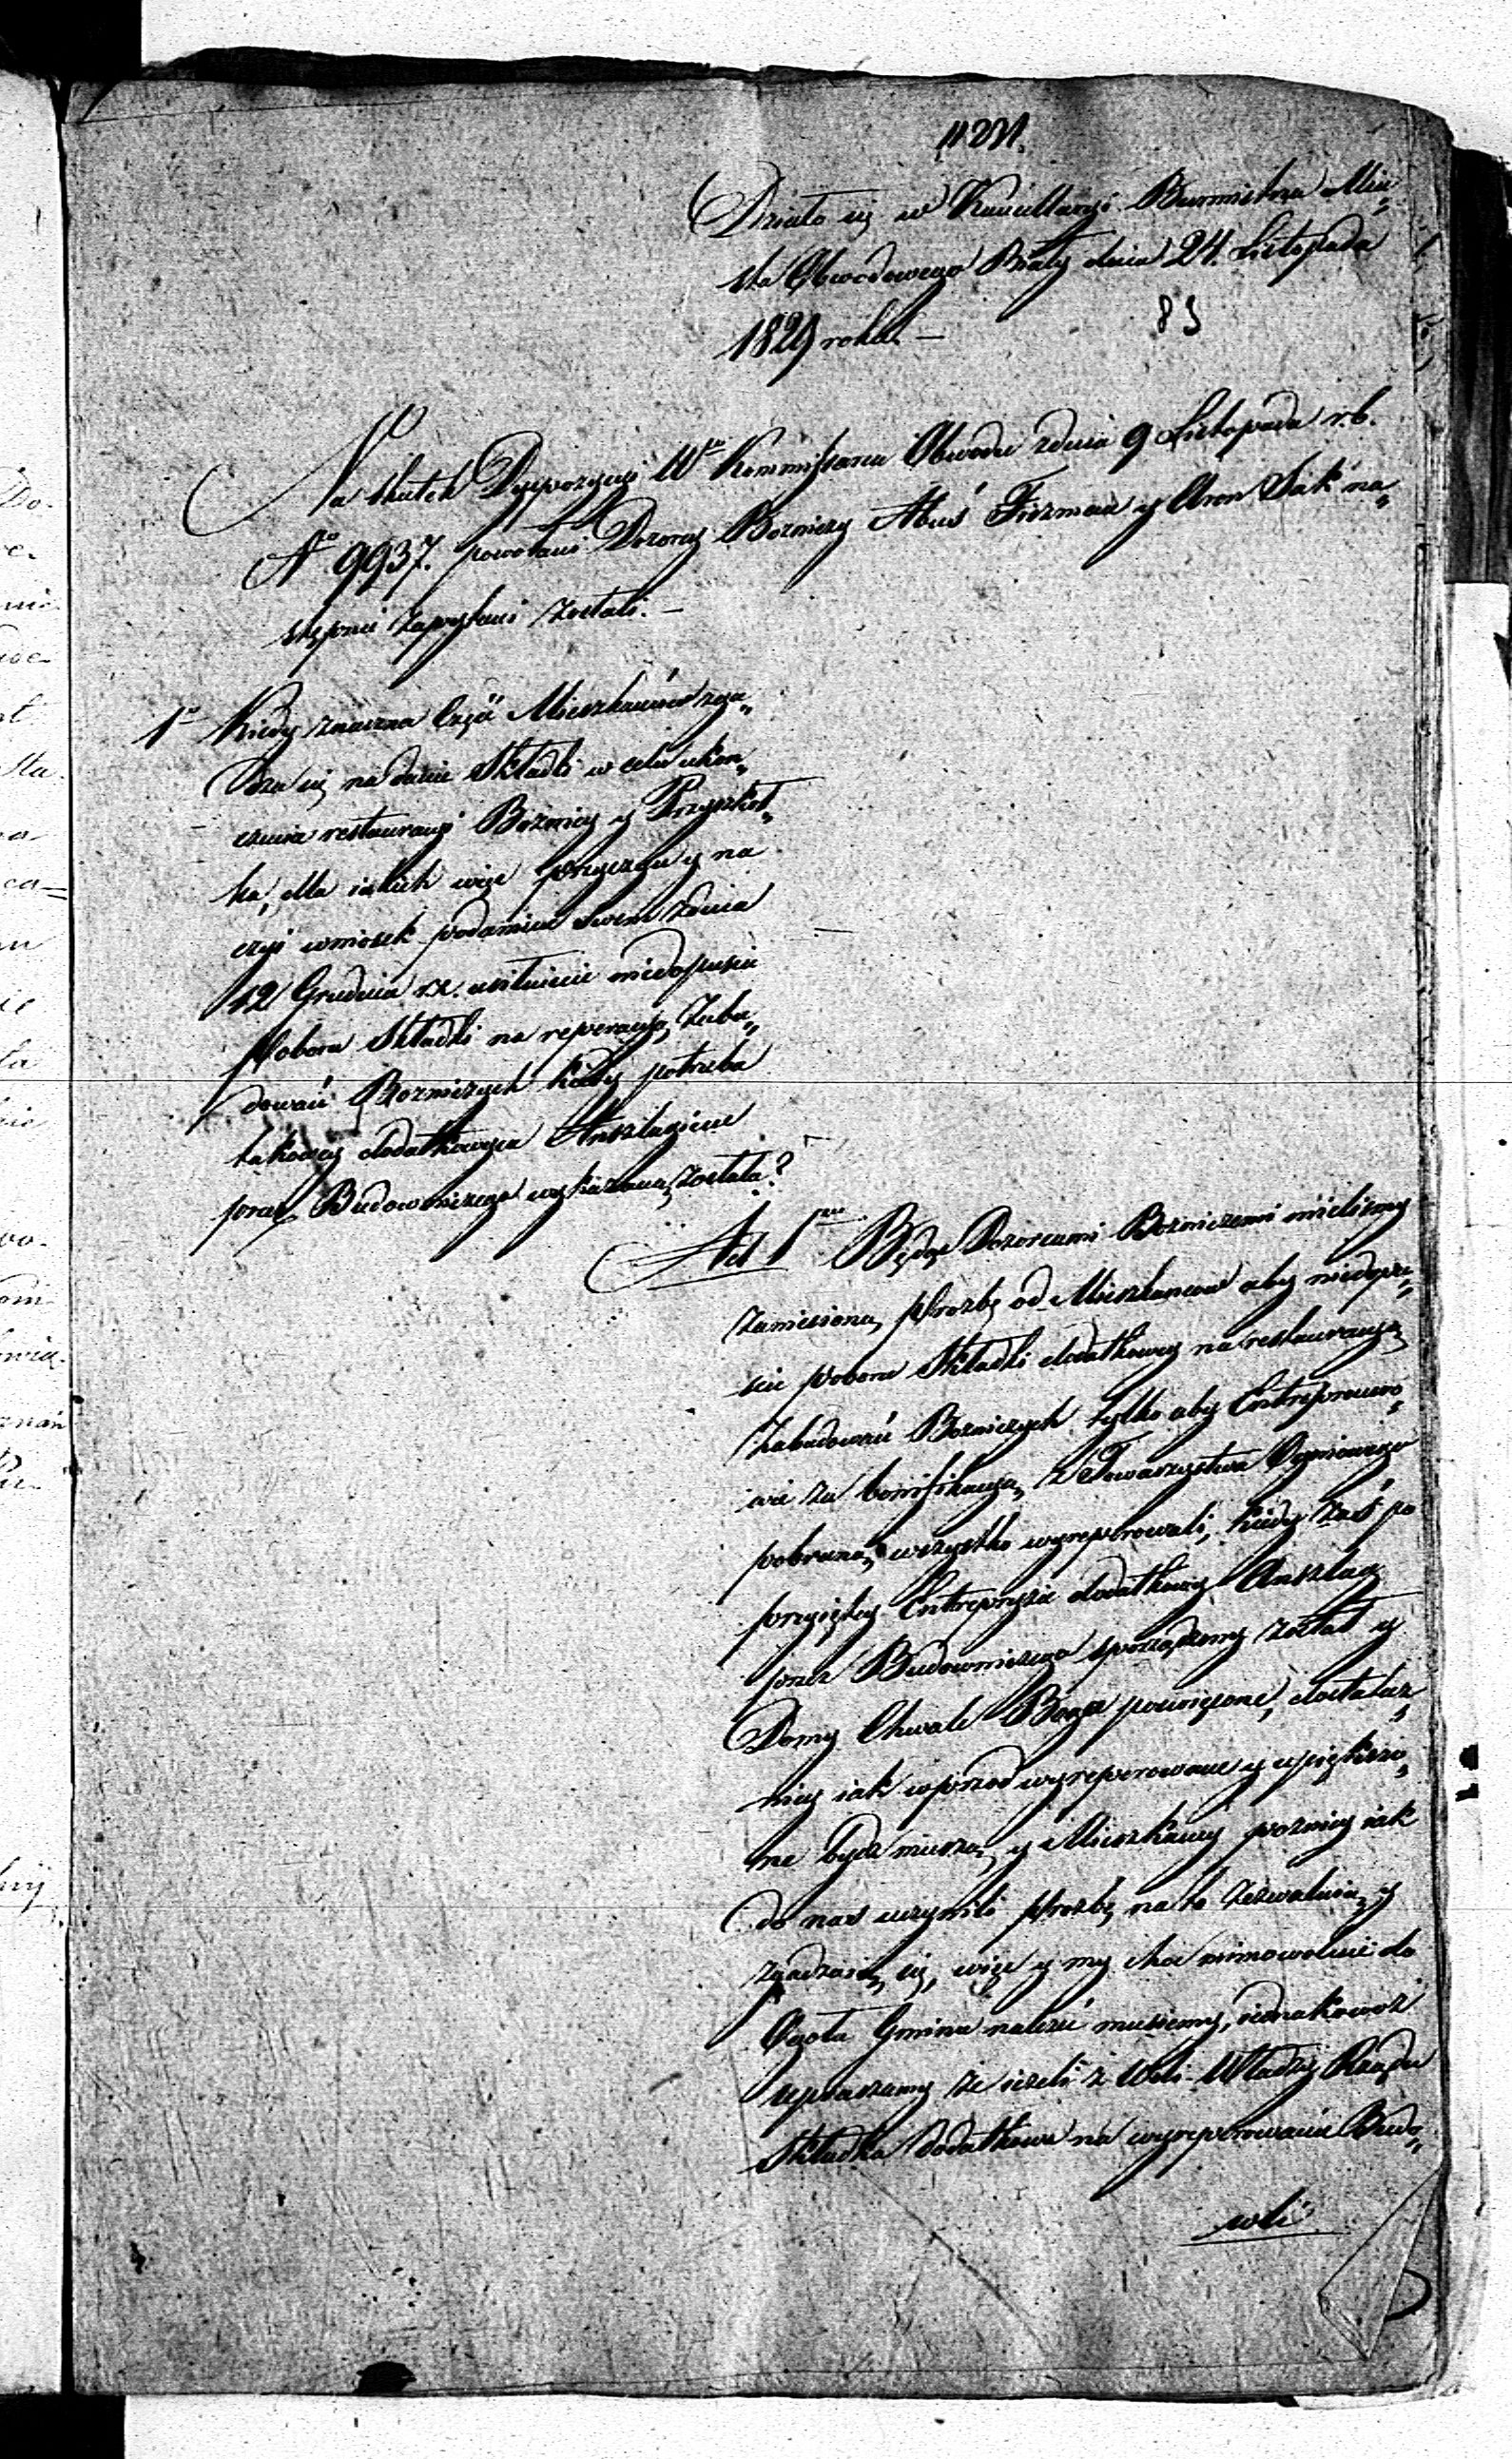 11231.
Działo się w Kancellaryi Burmistrza Mia„
sta Obwodowego Biały dnia 24. Listopada
1829 roku. —
83
Na skutek Dyspozycyi W⁰ Kommissarza Obwodu zdnia 9 Listopada r. b.
Nº 9937. powołani Dozorcy Bozniczy Abuś Fiszman y Aron Sak na„
stępnie zapytani zostali. —
1º Kiedy znaczna Część Mieszkańców zga„
dza się na danie Składki w celu ukon„
czenia restauracyi Bożnicy y Przyszkoł„
ka, dla iakich więc przyczyn y na
czyi wniosek podaniem swem zdnia
12 Grudnia r. z. usiłuiecie niedopuścić
poboru Składki na reperacyą Zabu„
dowań Bozniczych kiedy potrzeba
takowey dodatkowym Anszlagiem
przez Budowniczego wykazana została?
Ad 1um Będąc Dozorcami Bozniczemi mielismy
zaniesioną prozbę od Mieszkancow aby niedopu„
scić poboru Składki dodatkowey na restauracyą
Zabudowań Bozniczych tylko aby Entreprenero„
wie za bonifikacyą z Towarzystwa Ogniowego
pobraną wszystko wyreperowali, kiedy zaś po
przyiętey Entrepryzie dodatkowy Anszlag
przez Budowniczego sporządzony został y
Domy Chwale Boga poswięcone, dostatecz„
niey iak wprzod wyreperowane y upiększo„
ne bydz muszą y Mieszkancy pozniey iak
do nas uczynili prozbę na to zezwalaią y
zgadzaią się, więc y my choć mimowolnie do
Ogołu Gminu nalezeć musiemy, iednakowoż
upraszamy że iezeli z Woli Władzy Rządu
Składka dodatkowa na wyreperowanie Budo„
wli